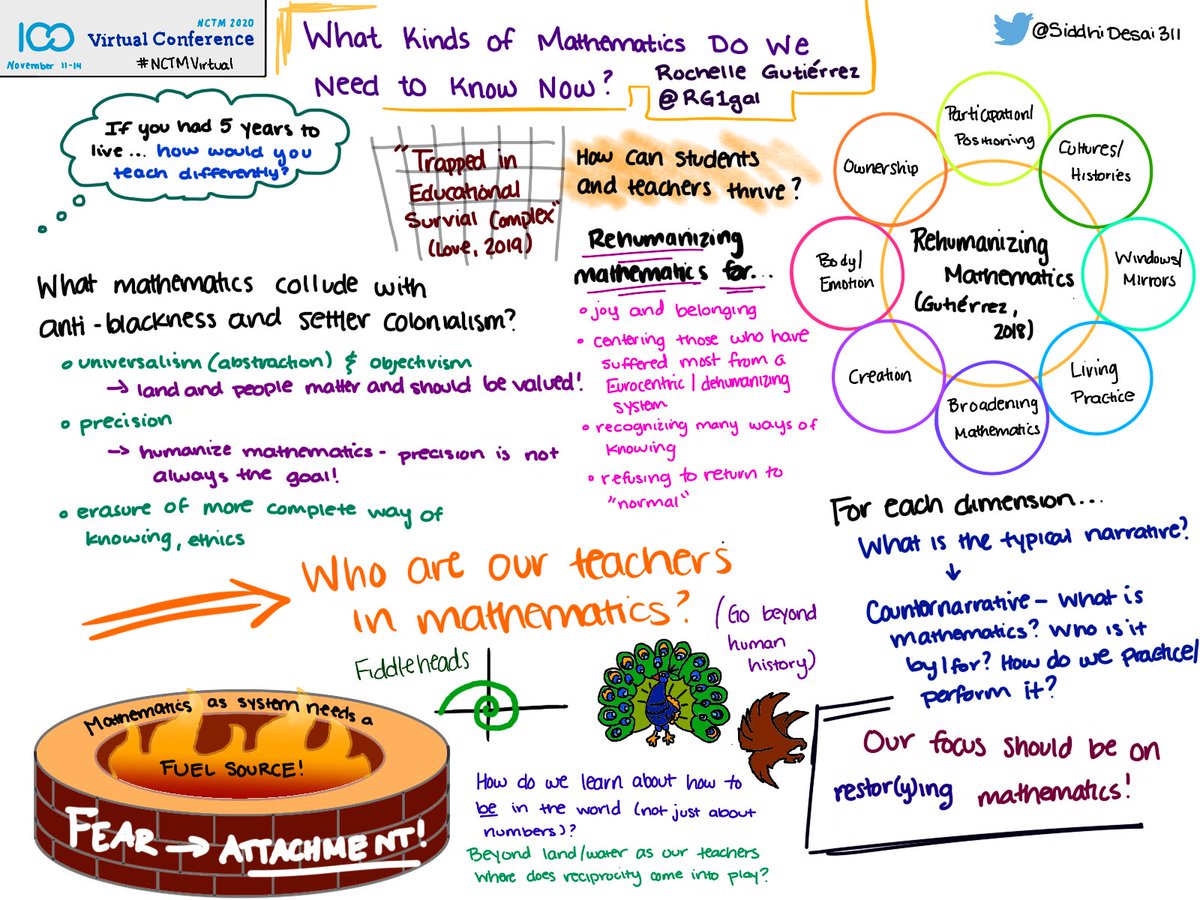 100
NCTM 2020
Virtual Conference
November 11-14
#NCTMVirtual
What Kinds of Mathematics Do We
Need to Know Now?
Rochelle Gutiérrez
@RG1gal
@SiddhiDesai311
If you had 5 years to
live... how would you
teach differently?
"Trapped in
Educational
Survial Complex"
(Love, 2019)
How can students
and teachers thrive?
What mathematics collude with
anti-blackness and settler colonialism?
universalism (abstraction) & objectivism
→ land and people matter and should be valued!
precision
→ humanize mathematics - precision is not
always the goal!
erasure of more complete way of
knowing, ethics
Rehumanizing
mathematics for...
joy and belonging
centering those who have
suffered most from a
Eurocentric/dehumanizing
system
recognizing many ways of
knowing
refusing to return to
"normal"
Participation/
Positioning
Cultures/
Histories
Windows/
Mirrors
Living
Practice
Broadening
Mathematics
Creation
Body/
Emotion
Ownership
Rehumanizing
Mathematics
(Gutiérrez,
2018)
For each dimension...
What is the typical narrative?
↓
Counternarrative - What is
mathematics? Who is it
by/for? How do we practice/
perform it?
Who are our teachers
in mathematics?
(Go beyond
human
history)
Fiddleheads
Mathematics as system needs a
FUEL SOURCE!
FEAR → ATTACHMENT!
How do we learn about how to
be in the world (not just about
numbers)?
Beyond land/water as our teachers
where does reciprocity come into play?
Our focus should be on
restor(y)ing mathematics!